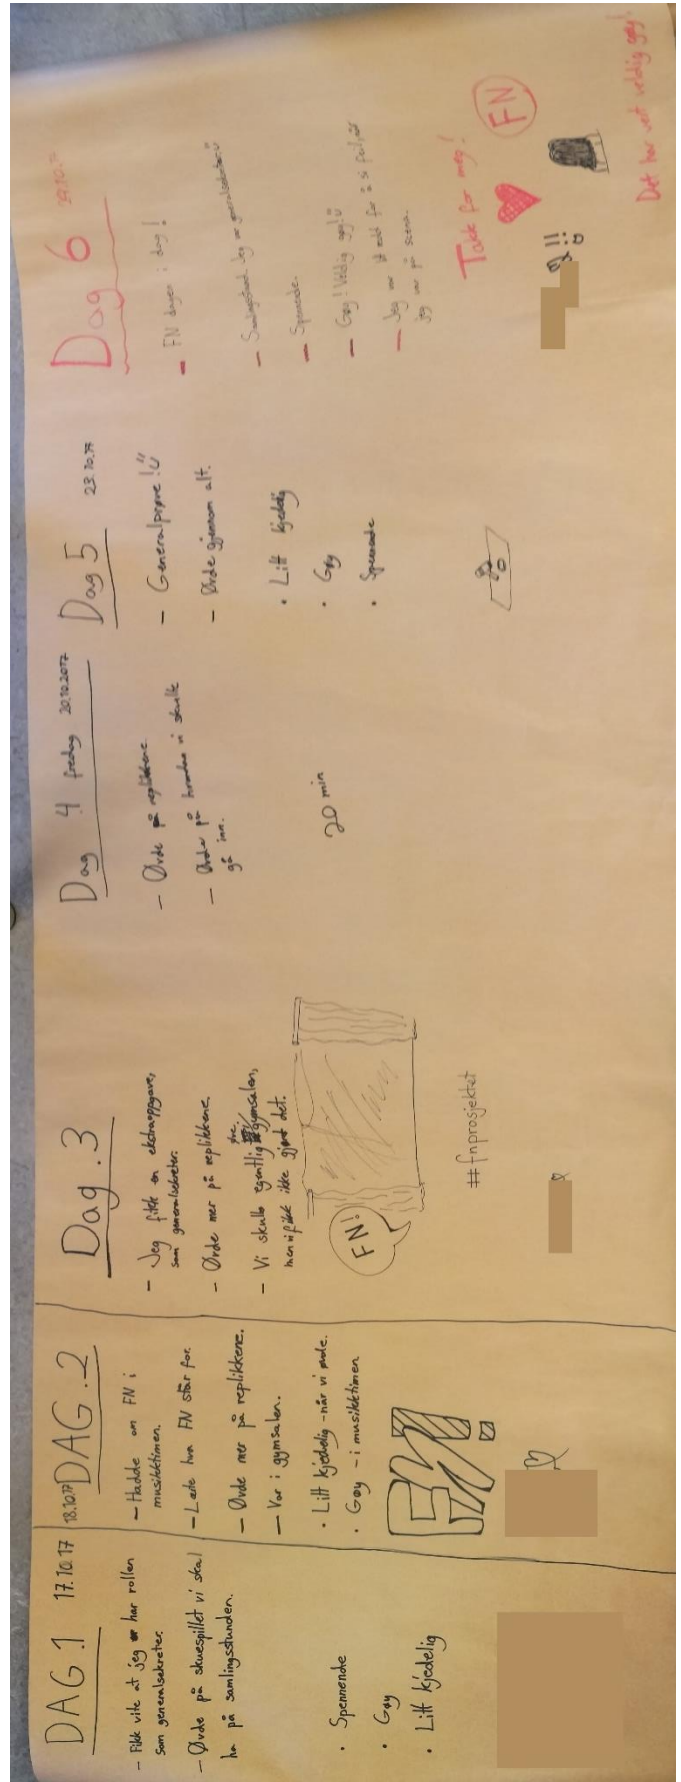 DAG 1 17.10.17
- Fikk vite at jeg har rollen
som generalsekretær.
- Øvde på skuespillet vi skal
ha på samlingsstunden.
• Spennende
• Gøy
• Litt kjedelig
18.10.17 DAG.2
- Hadde om FN i
musikktimen.
- Lærte hva FN står for.
- Øvde mer på replikkene.
- Var i gymsalen.
• Litt kjedelig - når vi
• Gøy - i musikktimen
FN!
Dag.3
- Jeg fikk en ekstraoppgave,
som generalsekretær.
- Øvde mer på replikkene.
- Vi skulle egentlig gymsalen,
men vi fikk ikke gjort det.
FN!
#fnprosjektet
Dag 4 fredag 20.10.2017
- Øvde på replikkene.
- Øvde på hvordan vi skulle
gå inn.
20 min
Dag 5 23.10.17
- Generalprøve!
- Øvde gjennom alt.
• Litt kjedelig
• Gøy
• Spennende
Dag 6
- FN dagen i dag!
- Samlingsstund. Jeg var generalsekretær
- Spennende.
- Gøy! Veldig gøy!
- Jeg var litt redd for å si feil, når
jeg var på scena.
Takk for meg!
FN
!!
Det har vert veldig gøy!